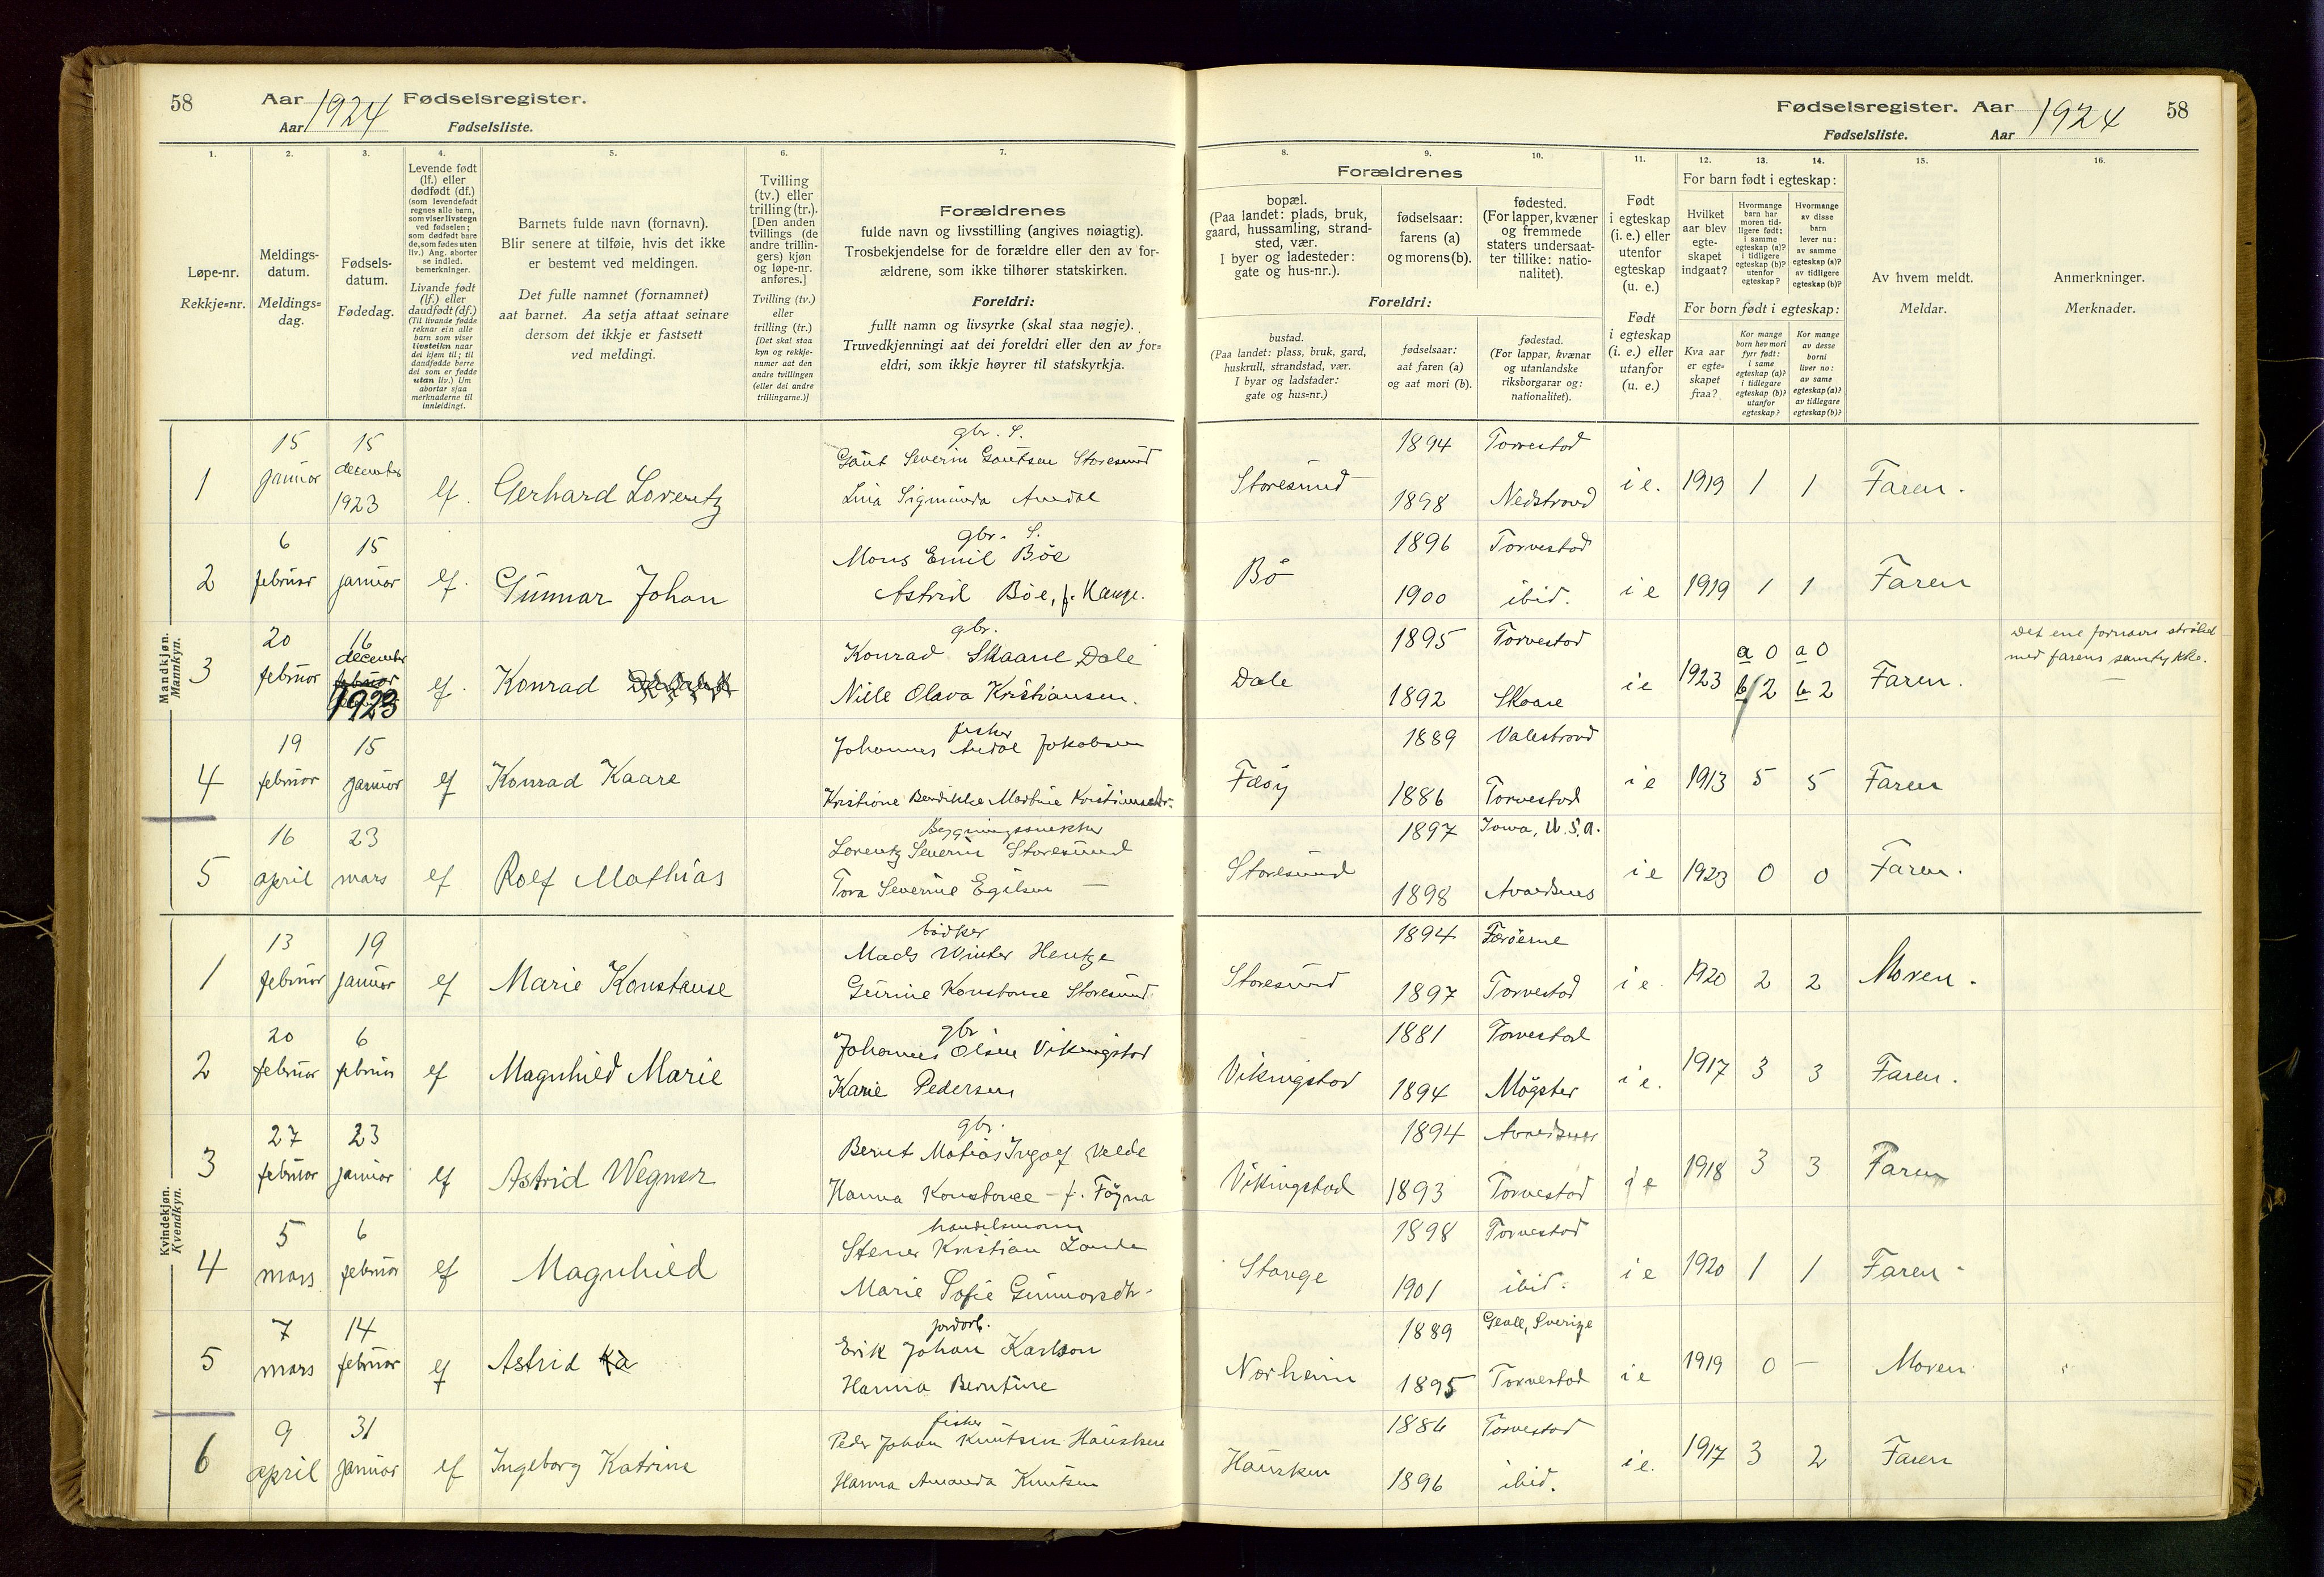 58 Aar 1924 Fødselsregister.
Aar Fødselsliste.
1. 2. 3. 4. 5. 6. 7.
Løpe-nr.
Rekkje=nr.
Meldings-
datum.
Meldings=
dag.
Fødsels-
datum.
Fødedag.
Levende født
(lf.) eller
dødfødt (df.)
(som levendefødt
regnes alle barn,
som viser livstegn
ved fødselen;
som dødfødt bare
de, som fødes uten
liv.) Ang. aborter
se indled.
bemerkninger.
Livande født
(lf.) eller
daudfødt (df.)
(Til livande fødde
reknar ein alle
barn som viser
livsteikn naar
dei kjem til; til
daudfødde berre
dei som er fødde
utan liv.) Um
abortar sjaa
merknaderne til
innleidingi.
Barnets fulde navn (fornavn).
Blir senere at tilføie, hvis det ikke
er bestemt ved meldingen.
Det fulle namnet (fornamnet)
aat barnet. Aa setja attaat seinare
dersom det ikkje er fastsett
ved meldingi.
Tvilling
(tv.) eller
trilling (tr.).
[Den anden
tvillings (de
andre trillin-
gers) kjøn
og løpe-nr.
anføres.]
Tvilling (tv.)
eller
trilling (tr.)
[Det skal staa
kyn og rekkje-
numer aat den
andre tvillingen
(eller dei andre
trillingarne.)]
Forældrenes
fulde navn og livsstilling (angives nøiagtig).
Trosbekjendelse for de forældre eller den av for-
ældrene, som ikke tilhører statskirken.
Foreldri:
fullt namn og livsyrke (skal staa nøgje).
Truvedkjenningi aat dei foreldri eller den av for=
eldri, som ikkje høyrer til statskyrkja.
Fødselsregister. Aar 1924 58
Fødselsliste. Aar
8. 9. 10. 11. 12. 13. 14. 15. 16.
Forældrenes
bopæl.
(Paa landet: plads, bruk,
gaard, hussamling, strand-
sted, vær.
I byer og ladesteder:
gate og hus-nr.).
fødselsaar:
farens (a)
og morens (b).
fødested.
(For lapper, kvæner
og fremmede
staters undersaat-
ter tillike: natio-
nalitet).
Foreldri:
bustad.
(Paa landet: plass, bruk, gard,
huskrull, strandstad, vær.
I byar og ladstader:
gate og hus=nr.)
fødselsaar:
aat faren (a)
og aat mori (b).
fødestad.
(For lappar, kvænar
og utanlandske
riksborgarar og:
nationalitet).
Født
i egteskap
(i. e.) eller
utenfor
egteskap
(u. e.)
Født
i egteskap
(i. e.) eller
utanfor
(u. e.)
For barn født i egteskap:
Hvilket
aar blev
egte-
skapet
indgaat?
Hvormange
barn har
moren tid-
ligere født:
i samme
egteskap (a)?
i tidligere
egteskap (b)?
utenfor
egteskap?
Hvormange
av disse
barn
lever nu:
av samme
egteskap (a)?
av tidligere
egteskap (b)?
For born født i egteskap:
Kva aar
er egte-
skapet
fraa?
Kor mange
born hev mori
fyrr født:
i same
egteskap (a)?
i tidlegare
egteskap (b)?
utanfor
egteskap?
Kor mange
av desse
borni
liver no:
av same
egteskap (a)?
av tidlegare
egteskap (b)?
Av hvem meldt.
Meldar.
Anmerkninger.
Merknader.
Mandkjøn.
Mannkyn.
1 15 januar 15 december 1923 lf. Gerhard Lorentz
gbr. S.
Gaut Severin Gautsen Storesund
Lina Sigmunda Auedal
Storesund 1894 Torvestad
1898 Nedstrand
i e. 1919 1 1 Faren.
2 6 februar 15 januar lf. Gunnar Johan
gbr. S.
Mons Emil Böe
Astrid Böe, f. Hauge.
Bö 1896 Torvestad
1900 ibid.
i e 1919 1 1 Faren
3 20 februar 16 december februar 1923 lf. Konrad
gbr.
Konrad Skaane Dale
Nille Olava Kristiansen.
Dale 1895 Torvestad
1892 Skaare
i e 1923 a 0 a 0
b 2 b 2 Faren.
Det ene fornavn ströket
med farens samtykke.
4 19 februar 15 januar lf Konrad Kaare
fisker
Johannes Auedal Jakobsen
Kristiane Bendikke Martine Kristiansdtr.
Fæöy 1889 Valestrand
1886 Torvestad
i e 1913 5 5 Faren
5 16 april 23 mars lf Rolf Mathias
Bygningssnekker
Lorentz Severin Storesund
Tora Severine Egilsen —
Storesund 1897 Iowa, U.S.A.
1898 Avaldsnes
i e 1923 0 0 Faren.
Kvindekjøn.
Kvendkyn.
1 13 februar 19 januar lf Marie Konstanse
bödker
Mads Winter Hentze
Gurine Konstanse Storesund
Storesund 1894 Færöerne
1897 Torvestad
i e. 1920 2 2 Moren.
2 20 februar 6 februar lf Magnhild Marie
gbr
Johannes Olsen Vikingstad
Karie Pedersen
Vikingstad 1881 Torvestad
1894 Mögster
i e. 1917 3 3 Faren.
3 27 februar 23 januar lf Astrid Wegner
gbr.
Bernt Matias Ingolf Velde
Hanna Konstanse – f. Föyna
Vikingstad 1894 Avaldsnes
1893 Torvestad
i e 1918 3 3 Faren
4 5 mars 6 februar lf Magnhild
handelsmann
Stener Kristian Lande
Marie Sofie Gunnarsdtr.
Stange 1898 Torvestad
1901 ibid.
i e 1920 1 1 Faren
5 7 mars 14 februar lf Astrid Ka
jordarb.
Erik Johan Karlson
Hanna Berntine
Norheim 1889 Gevle, Sverige
1895 Torvestad
i e 1919 0 — Moren
6 9 april 31 januar lf Ingeborg Katrine
fisker
Peder Johan Knutsen Hausken
Hanna Amanda Knutsen
Hausken 1886 Torvestad
1896 ibid.
i e. 1917 3 2 Faren